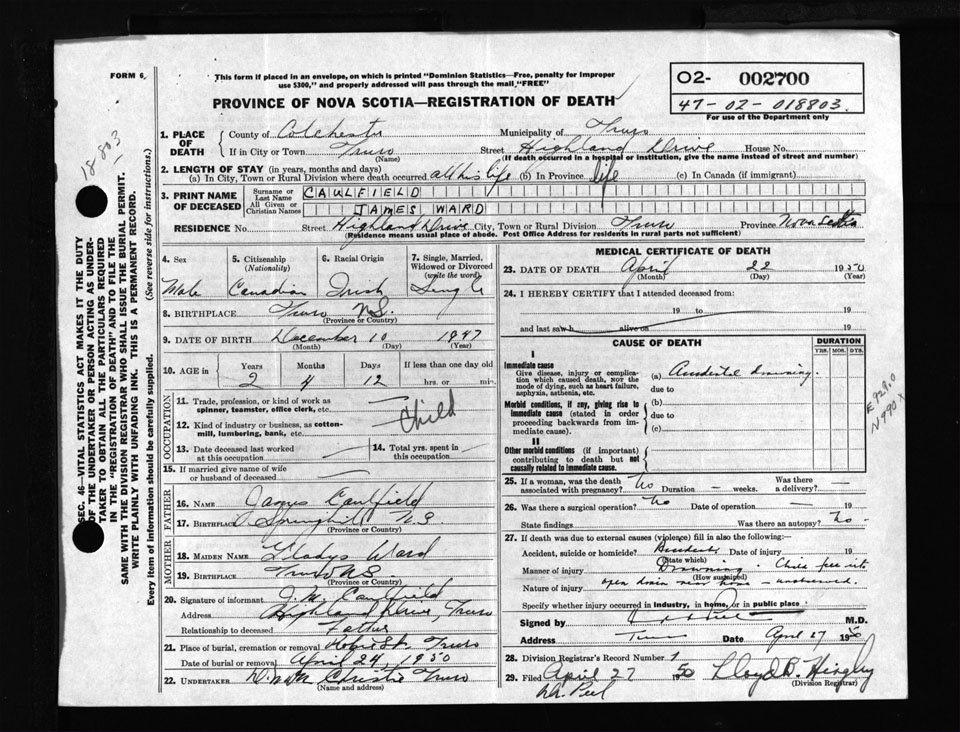 FORM 6.
This form if placed in an envelope, on which is printed "Dominion Statistics—Free, penalty for improper
use $300," and properly addressed will pass through the mail "FREE"
02- 002700
47-02-018803.
For use of the Department only
PROVINCE OF NOVA SCOTIA—REGISTRATION OF DEATH
18 803
1. PLACE OF DEATH
County of Colchester Municipality of Truro
If in City or Town Truro Street Highland Drive House No.
(Name) (If death occurred in a hospital or institution, give the name instead of street and number)
2. LENGTH OF STAY (in years, months and days)
(a) In City, Town or Rural Division where death occurred all his life (b) In Province life (c) In Canada (if immigrant)
3. PRINT NAME OF DECEASED
Surname or Last Name CAULFIELD
All Given or Christian Names JAMES WARD
RESIDENCE No. Street Highland Drive City, Town or Rural Division Truro Province Nova Scotia
(Residence means usual place of abode. Post Office Address for residents in rural parts not sufficient)
SEC. 46—VITAL STATISTICS ACT MAKES IT THE DUTY
OF THE UNDERTAKER OR PERSON ACTING AS UNDER-
TAKER TO OBTAIN ALL THE PARTICULARS REQUIRED
IN THE "REGISTRATION OF DEATH" AND TO FILE THE
SAME WITH THE DIVISION REGISTRAR WHO SHALL ISSUE THE BURIAL PERMIT.
WRITE PLAINLY WITH UNFADING INK. THIS IS A PERMANENT RECORD.
Every item of information should be carefully supplied. (See reverse side for instructions.)
4. Sex 5. Citizenship (Nationality) 6. Racial Origin 7. Single, Married, Widowed or Divorced (write the word)
Male Canadian Irish Single
8. BIRTHPLACE Truro N.S.
(Province or Country)
9. DATE OF BIRTH December 10 1947
(Month) (Day) (Year)
10. AGE in Years Months Days If less than one day old
2 4 12 hrs. or min.
OCCUPATION
11. Trade, profession, or kind of work as
spinner, teamster, office clerk, etc.
Child
12. Kind of industry or business, as cotton-
mill, lumbering, bank, etc.
13. Date deceased last worked
at this occupation
14. Total yrs. spent in
this occupation
15. If married give name of wife
or husband of deceased
FATHER
16. NAME James Caulfield
17. BIRTHPLACE Springhill N.S.
(Province or Country)
MOTHER
18. MAIDEN NAME Gladys Ward
19. BIRTHPLACE Truro N.S.
(Province or Country)
20. Signature of informant J.M. Caulfield
Address Highland Drive, Truro
Relationship to deceased Father
21. Place of burial, cremation or removal Robie St. Truro
Date of burial or removal April 24, 1950
22. UNDERTAKER Christie Truro
(Name and address)
MEDICAL CERTIFICATE OF DEATH
23. DATE OF DEATH April 22 1950
(Month) (Day) (Year)
24. I HEREBY CERTIFY that I attended deceased from:
19 to 19
and last saw h alive on 19
CAUSE OF DEATH DURATION
YRS. MOS. DYS.
I
Immediate cause
Give disease, injury or compli-
cation which caused death, NOT the
mode of dying, such as heart failure,
asphyxia, asthenia, etc.
(a) Accidental drowning.
due to
Morbid conditions, if any, giving rise to
immediate cause (stated in order
proceeding backwards from im-
mediate cause).
(b)
due to
(c)
E 929.0
N 990 X
II
Other morbid conditions (if important)
contributing to death but not
causally related to immediate cause.
25. If a woman, was the death
associated with pregnancy? No Duration — weeks. Was there a delivery? —
26. Was there a surgical operation? No Date of operation — 19
State findings Was there an autopsy? No
27. If death was due to external causes (violence) fill in also the following:—
Accident, suicide or homicide? Accident Date of injury 19
(State which)
Manner of injury Drowning. Child fell into
(How sustained)
Nature of injury open drain near home - unobserved.
Specify whether injury occurred in industry, in home, or in public place
Signed by M.D.
Address Truro Date April 27 1950
28. Division Registrar's Record No. 7
29. Filed April 27 1950 Lloyd B. Hingley
(Division Registrar)
Peel